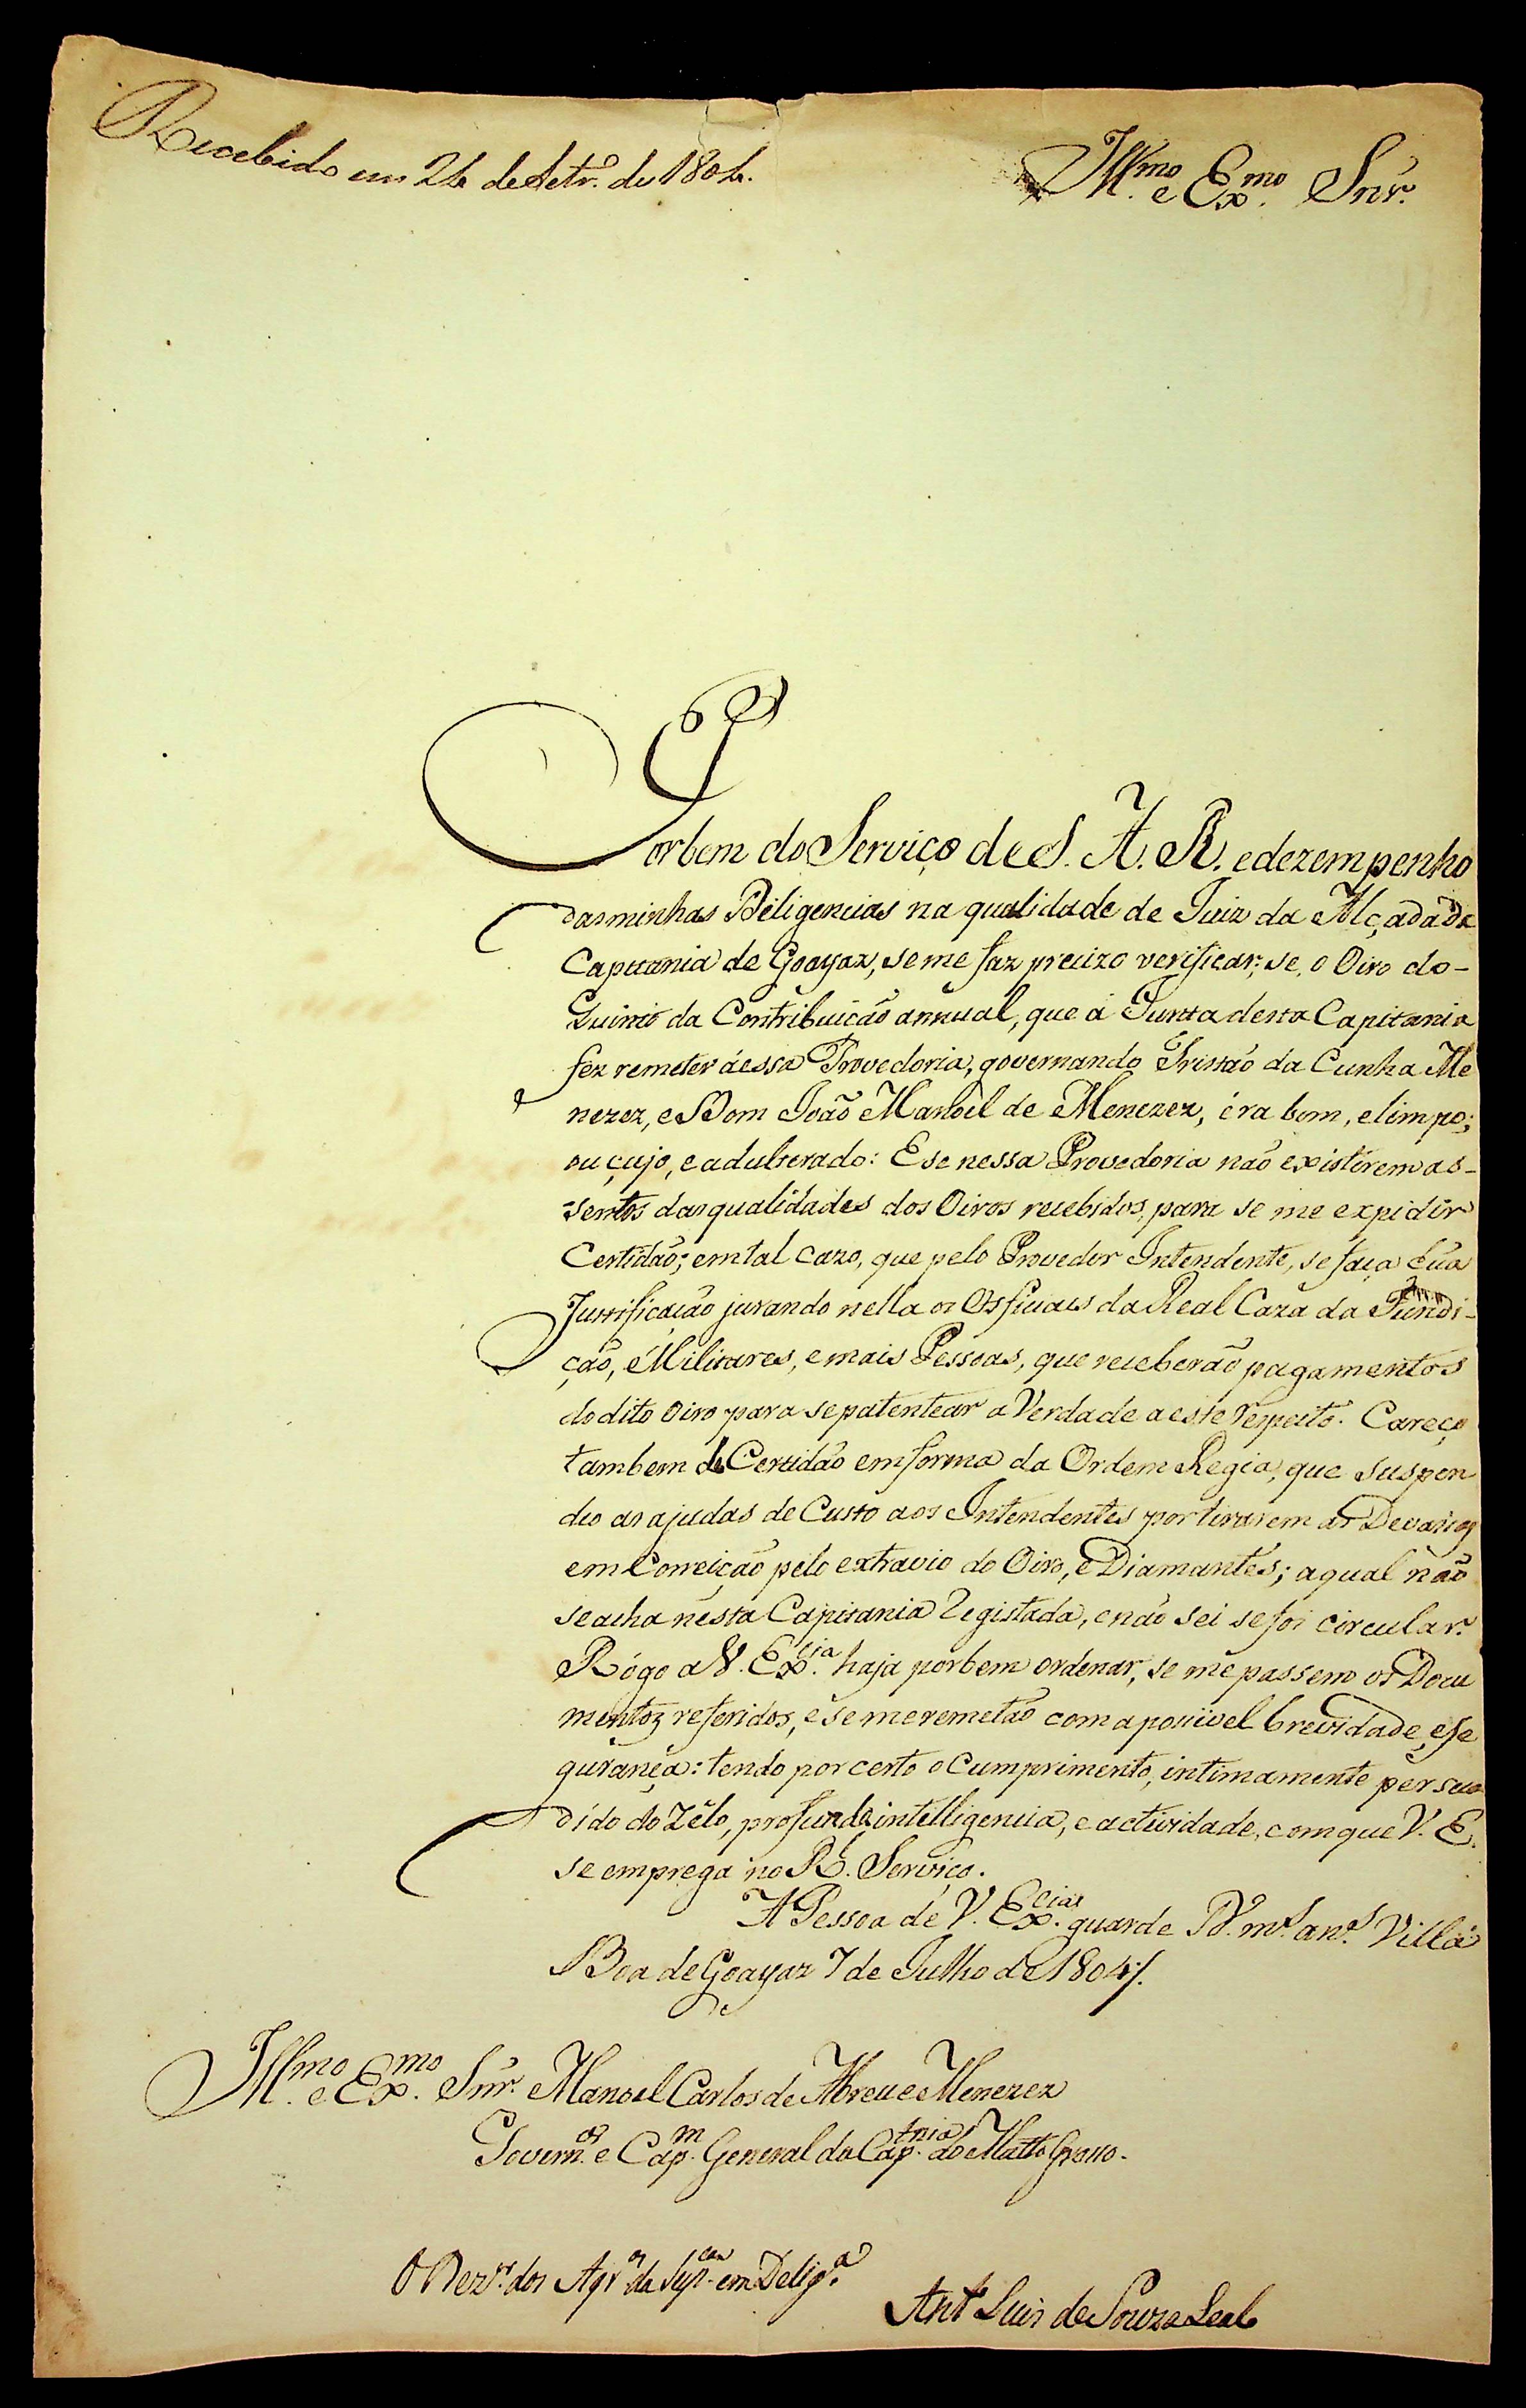 Recebido em 24 de Setr.º de 1804.
Ill.mo e Ex.mo Snr.
Por bem do Serviço de S. A. R. e dezempenho
das minhas Deligencias na qualidade de Juiz da Alçada da
Capitania de Goayaz, se me faz precizo verificar; se, o Oiro do-
Quinto da Contribuicão annual, que a Junta desta Capitania
fez remeter áessa Provedoria, governando Tristão da Cunha Me
nezez, e Dom João Manoel de Menezez, éra bom, e limpo;
ou çujo, e adulterado: E se nessa Provedoria não existirem as-
sentos das qualidades dos Oiros recebidos, para se me expidir
Certidão; em tal cazo, que pelo Provedor Intendente, se faça hũa
Justificacão jurando nella os Officiaes da Real Caza da Fundi-
ção, Militares, e mais Pessoas, que receberão pagamentos
do dito Oiro para se patentear a Verdade a este respeito. Careço
tambem de Certidão em forma da Ordem Regia, que suspen
deo as ajudas de Custo aos Intendentes por tirarem as Devaças
em Correição pelo extravio do Oiro, e Diamantes; a qual não
se acha nésta Capitania Registada, e não sei se foi circular.
Rógo a V. Ex.cia haja por bem ordenar, se me passem os Docu
mentoz referidos, e se me remetão com a possivel brevidade, e se
gurança: tendo por certo o Cumprimento, intimamente persua
dido do Zêlo, profunda intelligencia, e actividade, com que V. E.
se emprega no R.l Serviço.
A Pessoa de V. Ex.cia guarde D.s m.s an.s Villa
Boa de Goayaz 7 de Julho de 1804.
Ill.mo e Ex.mo Snr. Manoel Carlos de Abreu e Menezez
Govern.or e Cap.m General da Cap.tnia do Matto Grosso.
O Dez.or dos Agr.os da Sup.cam em Delig.a
Ant.o Luis de Souza Leal